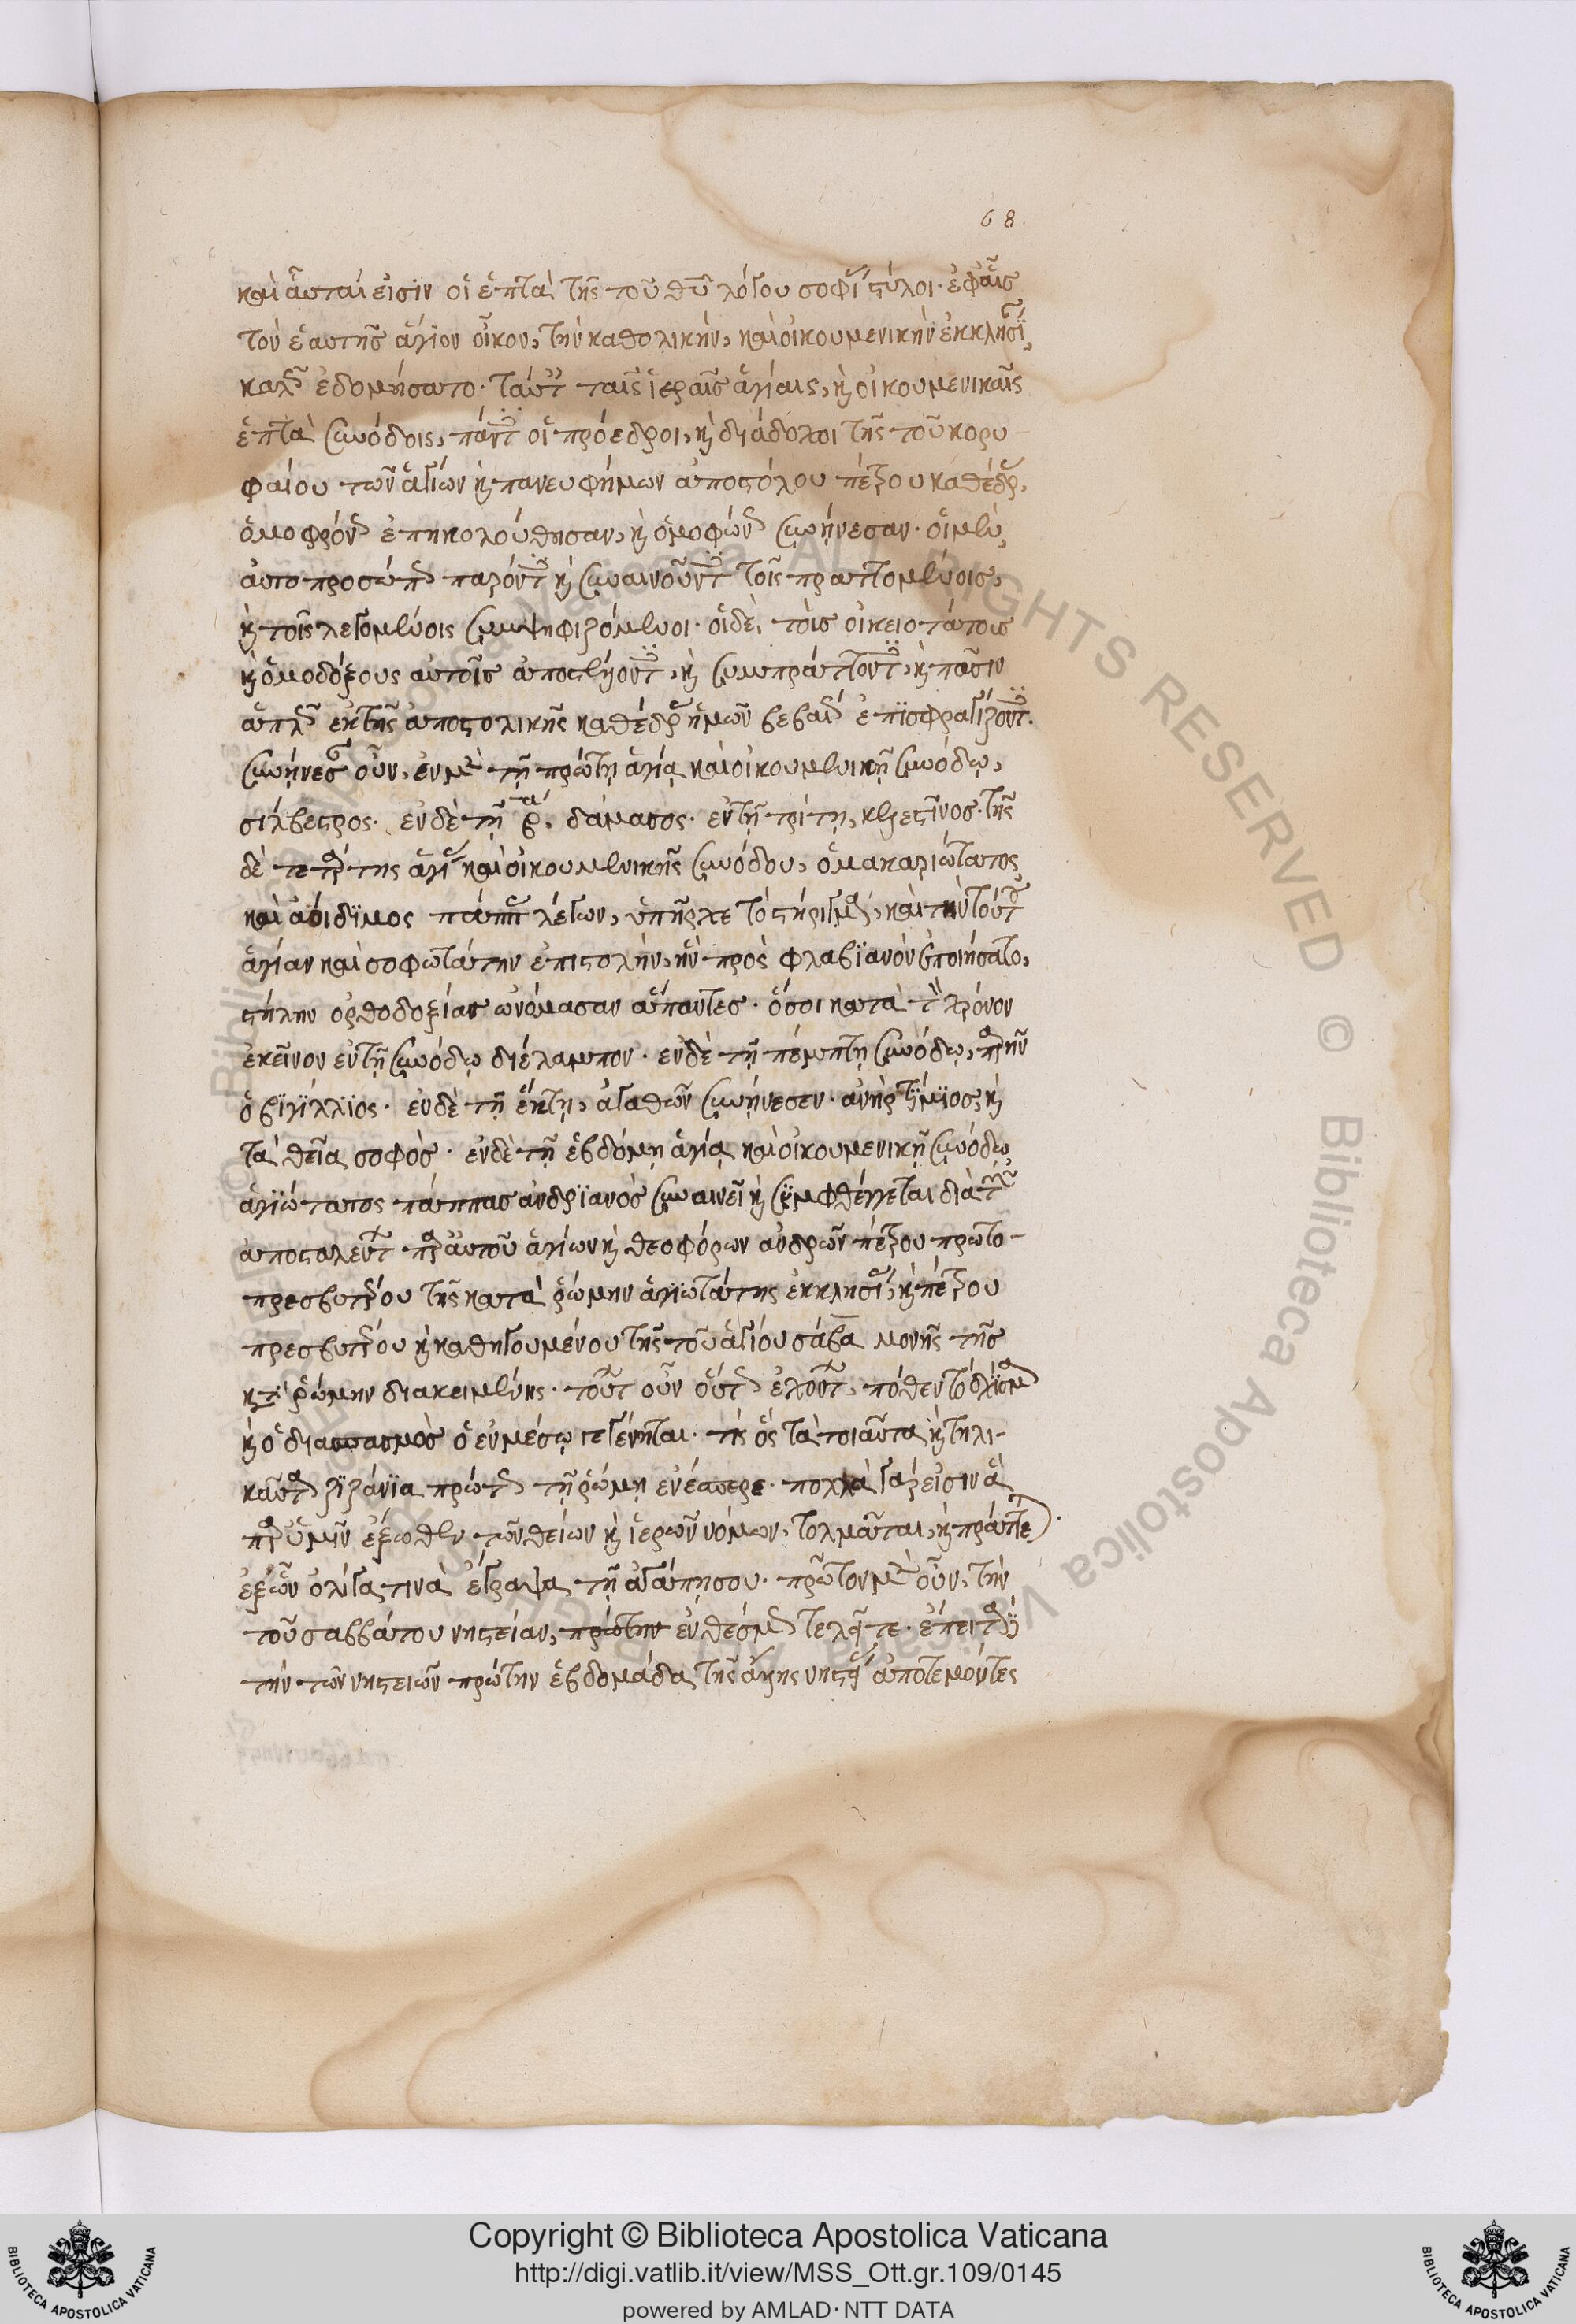 68
καὶ αὗται εἰσὶν οἱ ἑπτὰ τῆς τοῦ θυ λόγου σοφί στύλοι· ἐφ' αἷς
τὸν ἑαυτῆς ἅγιον οἶκον, τὴν καθολικὴν, καὶ οἰκουμενικὴν ἐκκλησί,
καλ ἐδομήσατο· ταύτ ταῖς ἱεραῖς ἁγίαις, κ οἰκουμενικαῖς
ἑπτὰ συνόδοις, πάντ οἱ πρόεδροι, κ διάδοχοι τῆς τοῦ κορυ-
φαίου τῶν ἁγίων κ πανευφήμων ἀποστόλου πέτρου καθέδρ,
ὁμοφρόν ἐπηκολούθησαν, κ ὁμοφών συνήνεσαν· οἱ μὲν,
αὐτοπροσώπ παρόντ κ συναινοῦντ τοῖς πραττομένοις,
κ τοῖς λεγομένοις συμψηφιζόμενοι· οἱ δὲ, τοὺς οἰκειοτάτους
κ ὁμοδόξους αὐτοῖς ἀποστέλλοντ, κ συμπράττοντ, κ πᾶσιν
ἁπλ ἐκ τῆς ἀποστολικῆς καθέδρ ἡμῶν βεβαί ἐπϊσφραγίζοντ.
συνήνεσ οὖν, ἐν μὲν τῇ πρώτῃ ἁγίᾳ καὶ οἰκουμενικῇ συνόδῳ,
σίλβεστρος· ἐν δὲ τῇ β, δάμασος· ἐν τῇ τρίτῃ, κελεστῖνος· τῆς
δὲ τετάρτης ἁγί καὶ οἰκουμενικῆς συνόδου, ὁ μακαριώτατος
καὶ ἀοίδϊμος πάππ λέγων, ὑπῆρχε τὸ στήριγμ, καὶ τὴν τούτ
ἁγίαν καὶ σοφωτάτην ἐπιστολὴν, ἣν πρὸς φλαβϊανὸν ἐποιήσατο,
στήλην ὀρθοδοξίας ὠνόμασαν ἅπαντες· ὅσοι κατὰ τ χρόνον
ἐκεῖνον ἐν τῇ συνόδῳ διέλαμπον· ἐν δὲ τῇ πέμπτῃ συνόδῳ, παρῆν
ὁ βϊγϊλλϊος· ἐν δὲ τῇ ἕκτῃ, ἀγαθῶν συνήνεσεν· ἀνὴρ τϊμϊος κ
τὰ θεῖα σοφὸς· ἐν δὲ τῇ ἑβδόμῃ ἁγίᾳ καὶ οἰκουμενικῇ συνόδῳ
ἁγιώτατος πάππας ἀνδρϊανὸς συναινεῖ κ συμφθέγγεται διὰ τ
ἀποσταλέντ παρ αὐτοῦ ἁγίων κ θεοφόρων ἀνδρῶν πέτρου πρωτο-
πρεσβυτέρου τῆς κατὰ ῥώμην ἁγιωτάτης ἐκκλησί, κ πέτρου
πρεσβυτέρου κ καθηγουμένου τῆς τοῦ ἁγίου σάβα μονῆς τῆς
κτ ῥώμην διακειμένης· τοῦτ οὖν οὕτ ἐχόντ, πόθεν τὸ σχίσμ
κ ὁ διασπασμὸς ὁ ἐν μέσῳ γεγένηται· τίς ὃς τὰ τοιαῦτα κ τηλι-
καῦτ ζϊζάνϊα πρώτ τῇ ῥώμῃ ἐνέσπειρε· πολλὰ γάρ εἰσιν ἃ
παρ ὑμῖν ἔξωθεν τῶν θείων κ ἱερῶν νόμων, τολμᾶται, κ πράττε·
ἐξ ὧν ὀλίγα τινὰ ἔγραψα τῇ ἀγάπῃ σου· πρῶτον μὲν οὖν, τὴν
τοῦ σαββάτου νηστείαν, πρώτην ἐνθέσμ τελεῖτε· ἔπειτ
τὴν τῶν νηστειῶν πρώτην ἑβδομάδα τῆς ἄλλης νηστεί ἀποτεμόντες
Copyright © Biblioteca Apostolica Vaticana
http://digi.vatlib.it/view/MSS_Ott.gr.109/0145
powered by AMLAD·NTT DATA
BIBLIOTECA APOSTOLICA VATICANA
BIBLIOTECA APOSTOLICA VATICANA